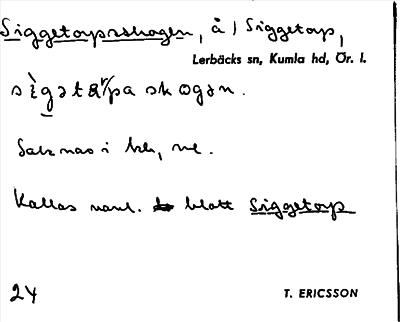 Siggetorpsskogen, å ) Siggetorp,
Lerbäcks sn, Kumla hd, Ör. l.
sìgətàrpa skogən.
Saknas i
Kallas vanl. blott Siggetorp
24
T. ERICSSON